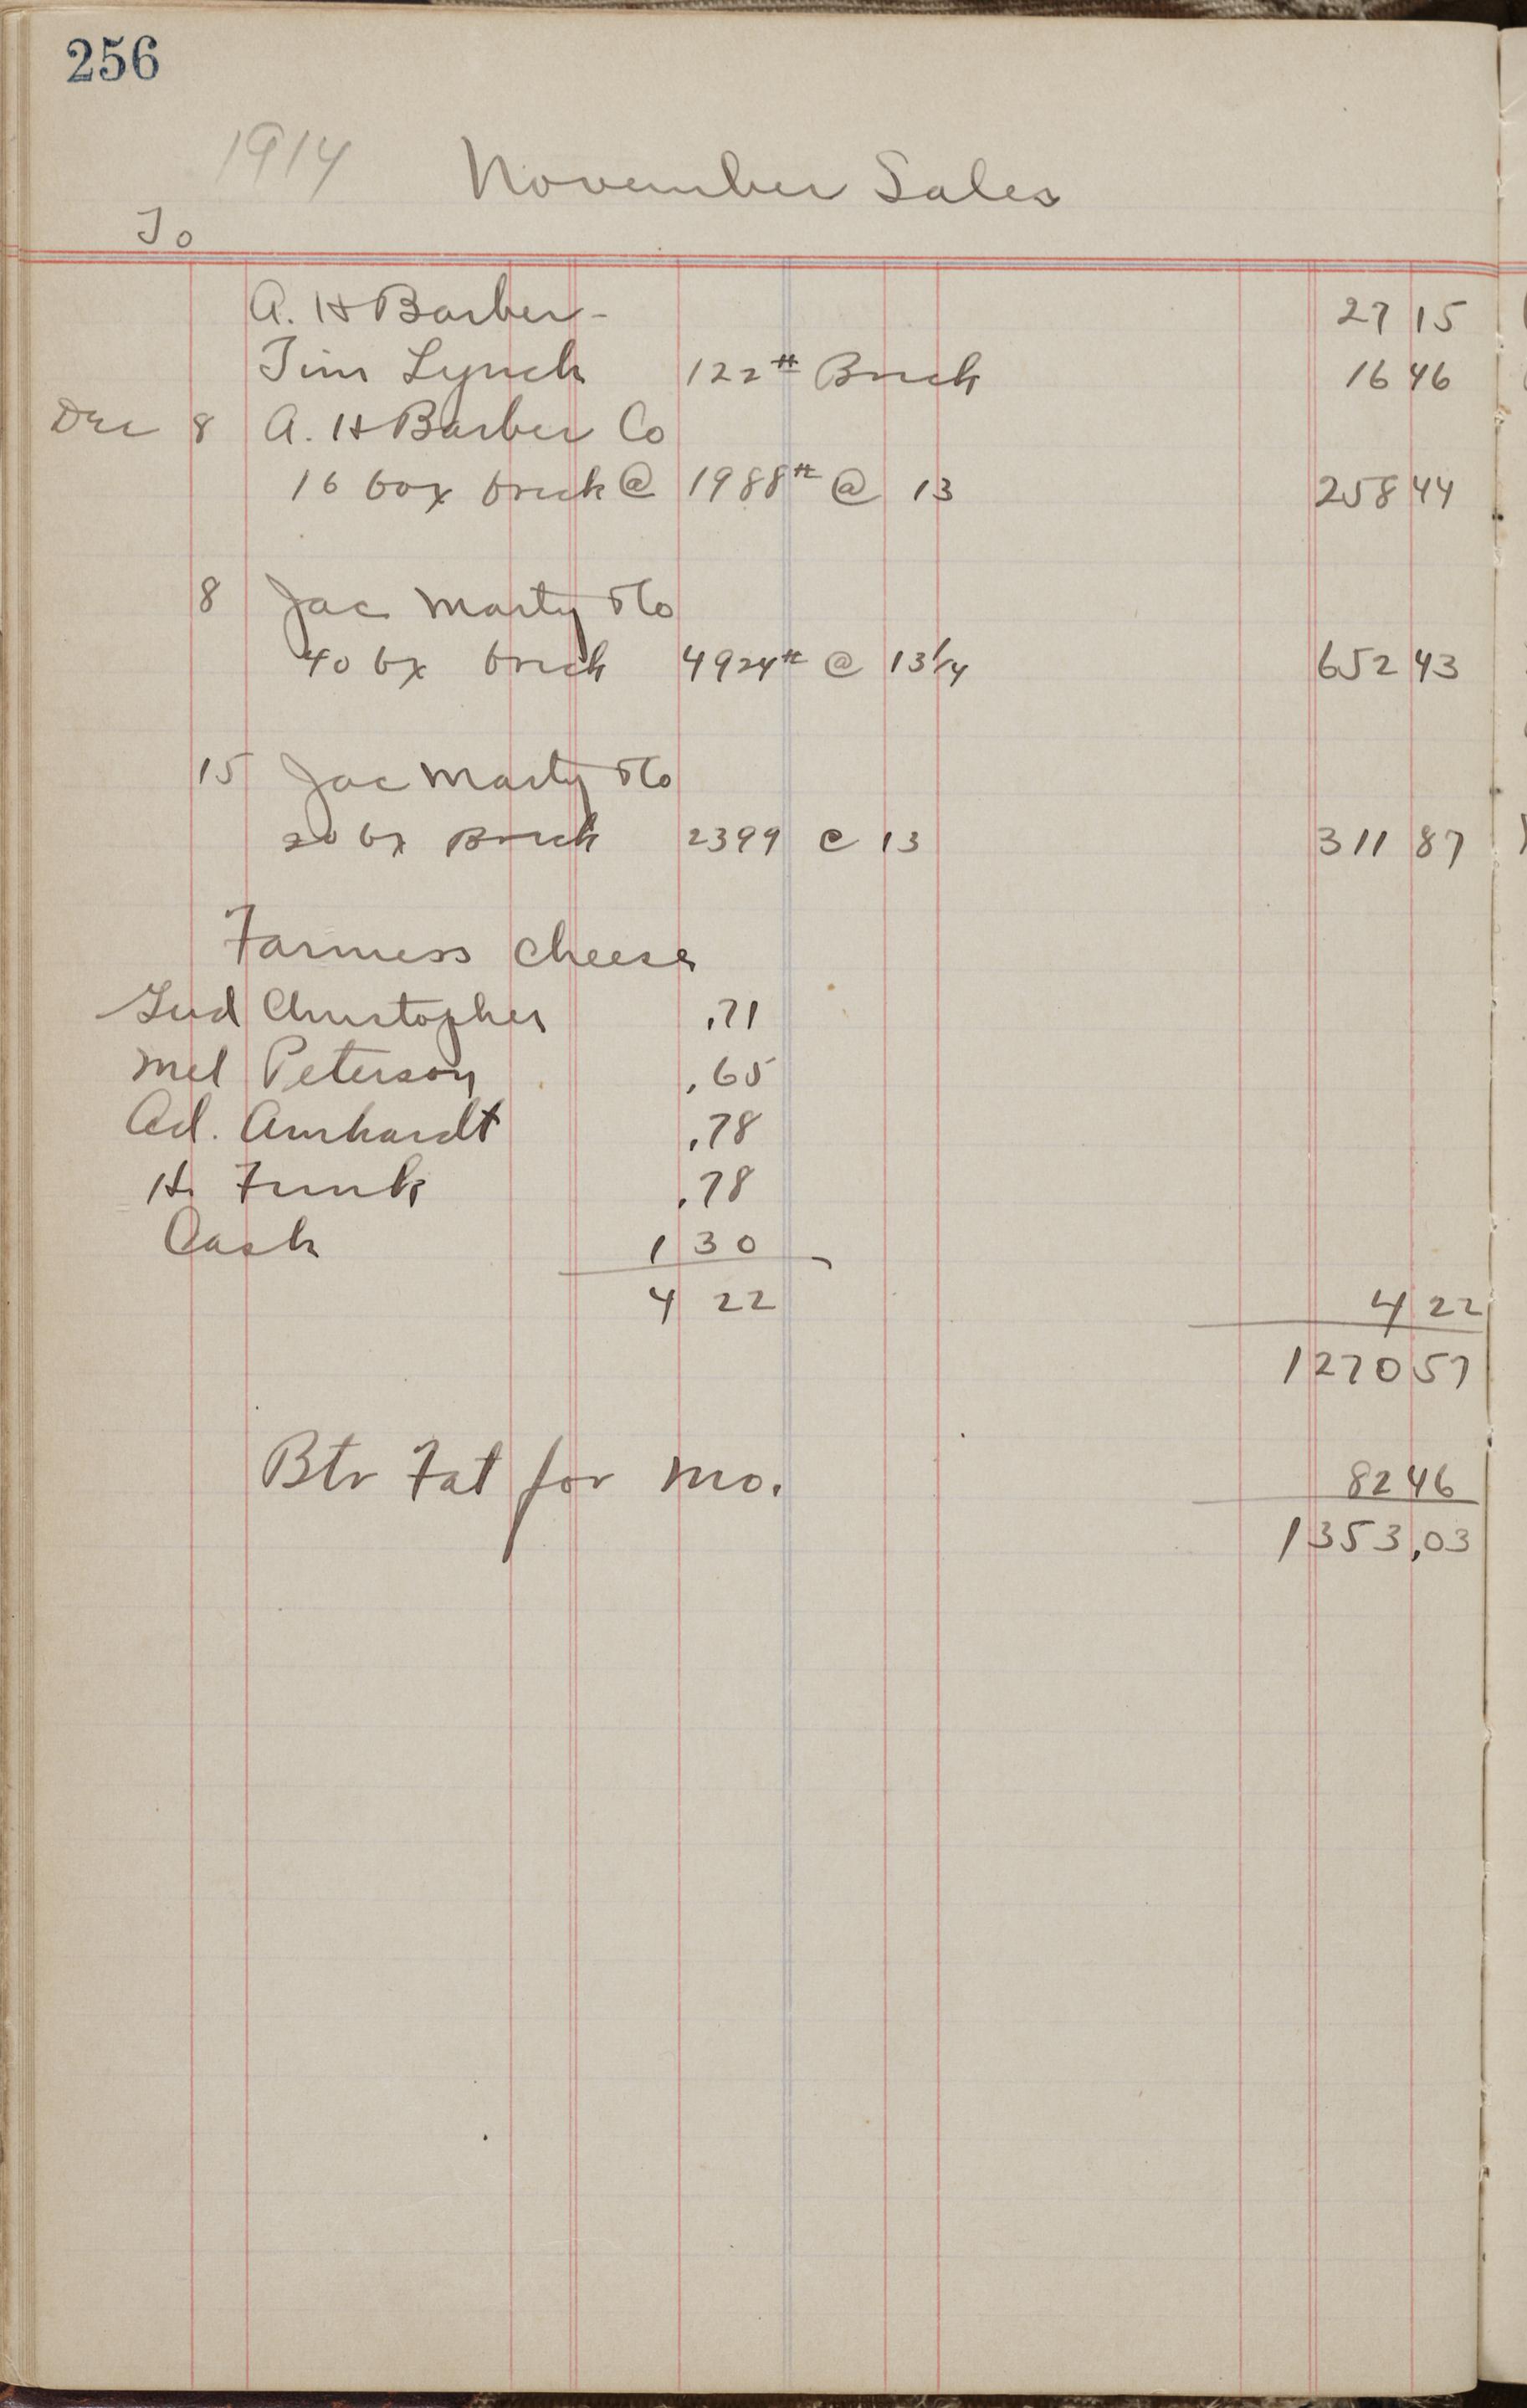 256
1914 November Sales
To
A. H Barber - 27 15
Tim Lynch 122# Brick 16 46
Dec 8 A. H Barber Co
16 box brick @ 1988# @ 13 258 44
8 Jac Marty & Co
40 bx brick 4924# @ 13 1/4 652 43
15 Jac Marty & Co
20 bx Brick 2399 @ 13 311 87
Farmers Cheese
Christopher .71
Mel Peterson .65
Ad. Arnhardt .78
H. Funk .78
Cash 1 30
4 22 4 22
1270 57
Btr Fat for Mo. 82 46
1353.03